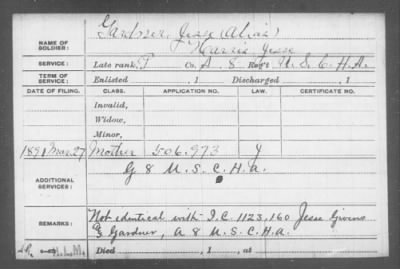 Gardner, Jesse (Alias)
NAME OF SOLDIER: Harris, Jesse
SERVICE: Late rank P Co. A. 8 Reg't U.S.C.H.A.
TERM OF SERVICE: Enlisted , 1 Discharged , 1
DATE OF FILING. CLASS. APPLICATION NO. LAW. CERTIFICATE NO.
Invalid,
Widow,
Minor,
1891 Mar. 27 Mother 506.973 Y
ADDITIONAL SERVICES: G 8 U.S.C.H.A.
REMARKS: Not identical with I.C. 1123,160 Jesse Givens
Gardner, A 8 U.S.C.H.A.
Died , 1 , at